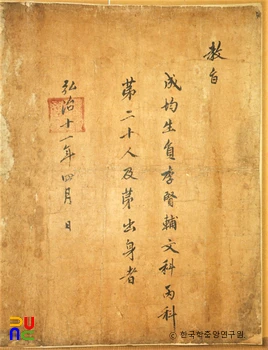 教旨
成均生員李賢輔文科丙科
第二十人及第出身者
弘治十一年四月 日
© 한국학중앙연구원